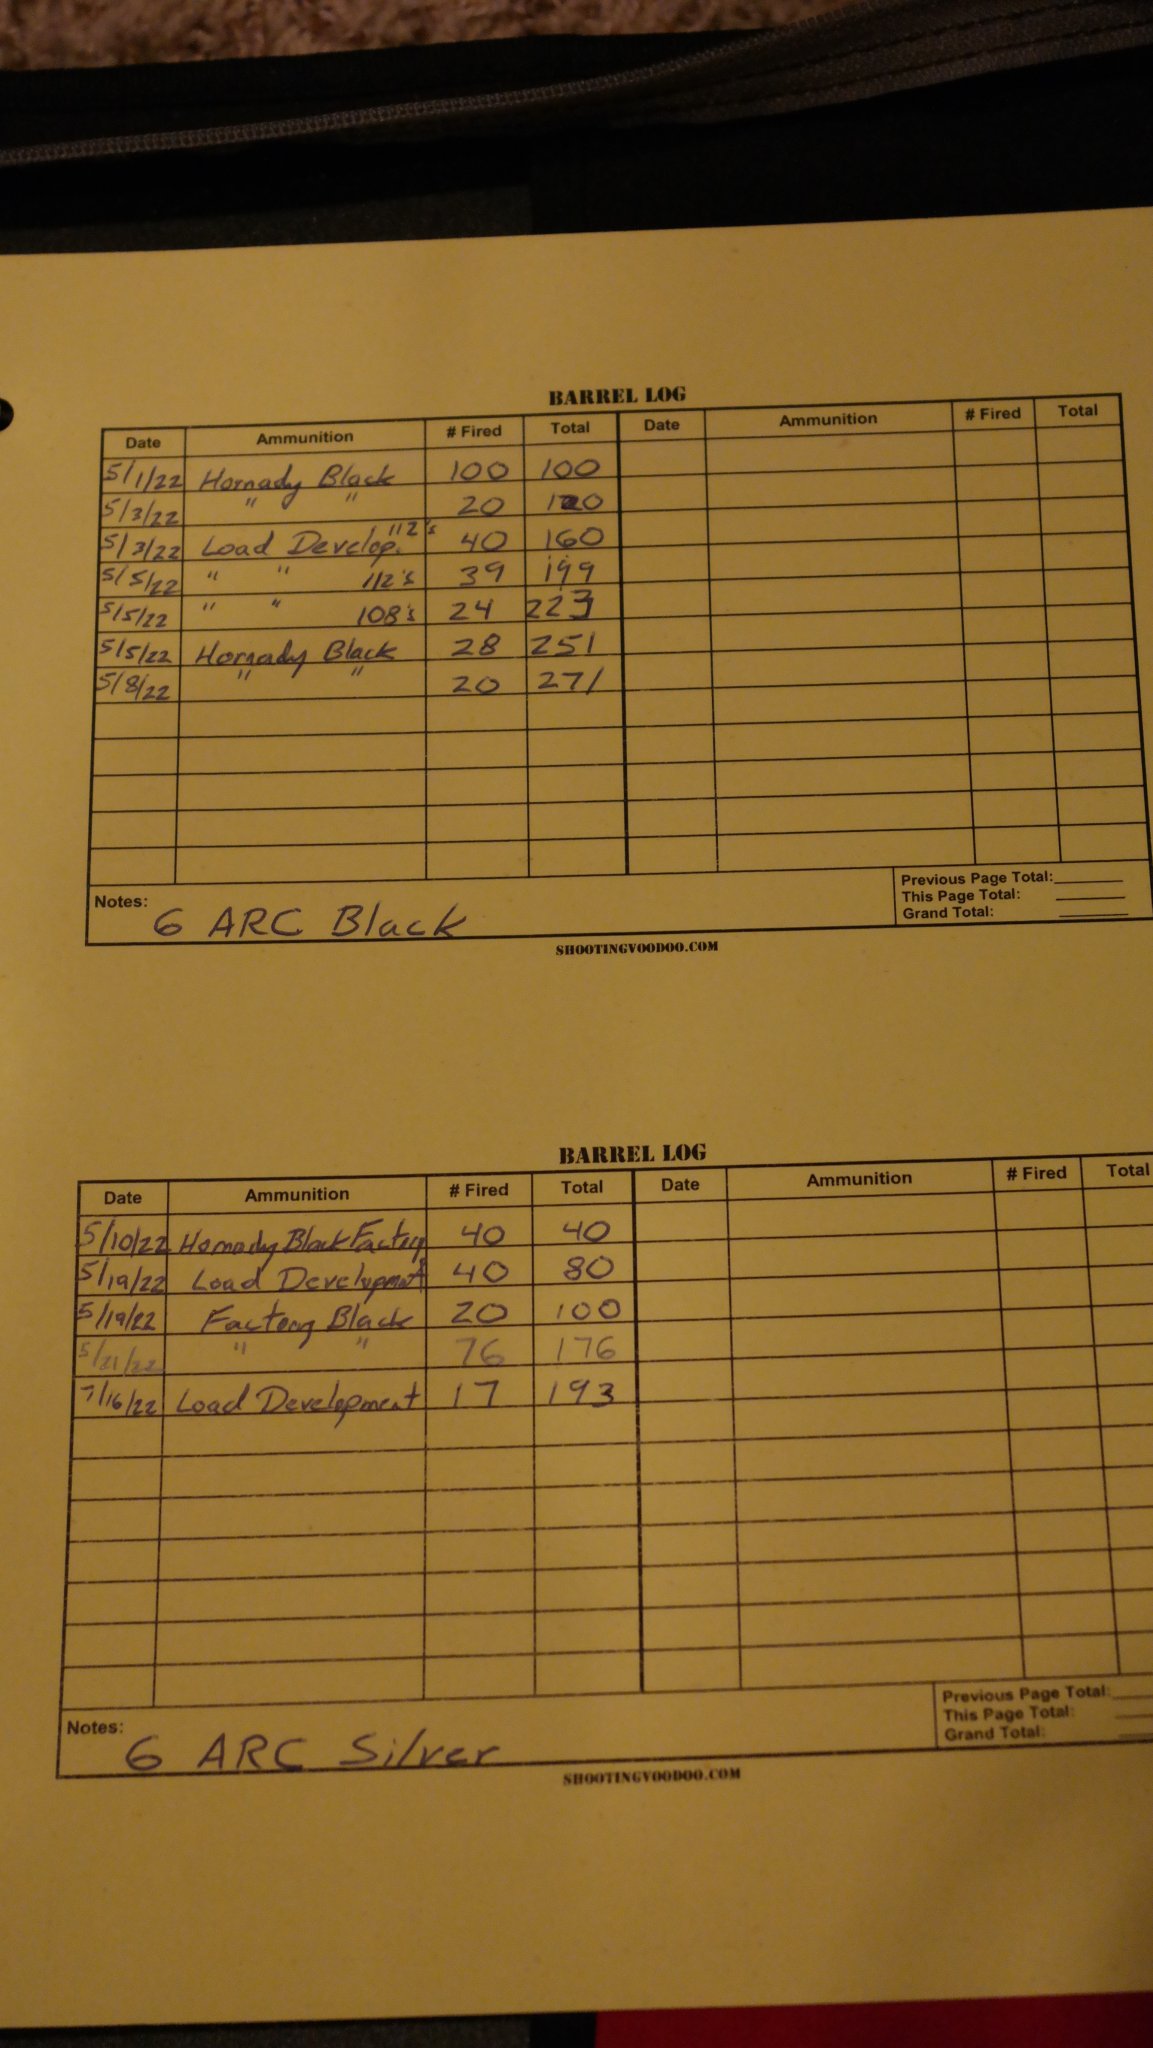 BARREL LOG
Date Ammunition # Fired Total Date Ammunition # Fired Total
5/1/22 Hornady Black 100 100
5/3/22 " " 20 120
5/3/22 Load Develop. 112's 40 160
5/5/22 " " 112's 39 199
5/5/22 " " 108's 24 223
5/5/22 Hornady Black 28 251
5/8/22 " " 20 271
Notes: 6 ARC Black
Previous Page Total:
This Page Total:
Grand Total:
SHOOTINGVOODOO.COM
BARREL LOG
Date Ammunition # Fired Total Date Ammunition # Fired Total
5/10/22 Hornady Black Factory 40 40
5/19/22 Load Development 40 80
5/19/22 Factory Black 20 100
5/21/22 " " 76 176
7/16/22 Load Development 17 193
Notes: 6 ARC Silver
Previous Page Total:
This Page Total:
Grand Total:
SHOOTINGVOODOO.COM